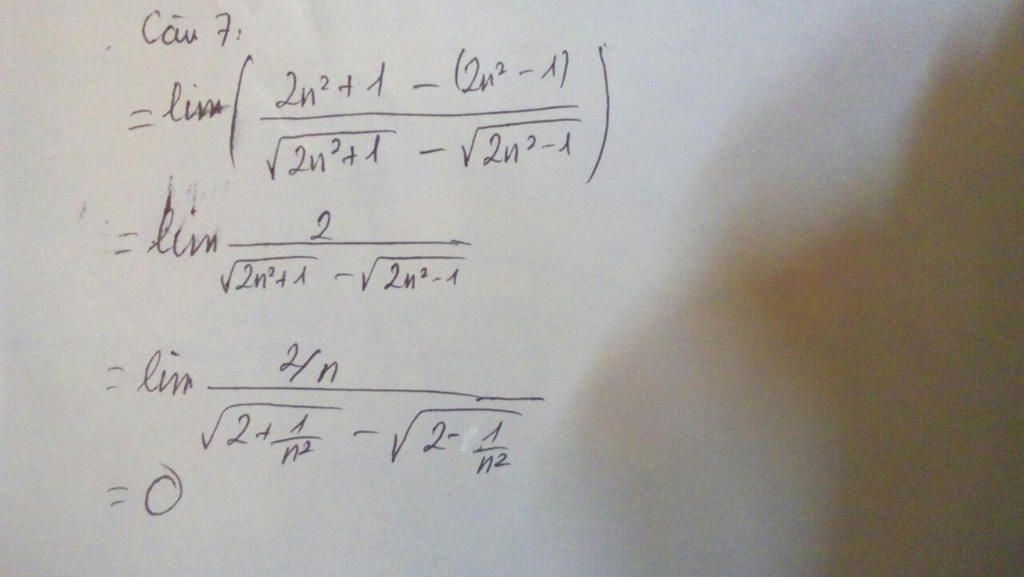 Câu 7:
= lim( (2n² + 1 - (2n² - 1)) / (√(2n² + 1) - √(2n² - 1)) )
= lim 2 / (√(2n² + 1) - √(2n² - 1))
= lim (2/n) / (√(2 + 1/n²) - √(2 - 1/n²))
= 0